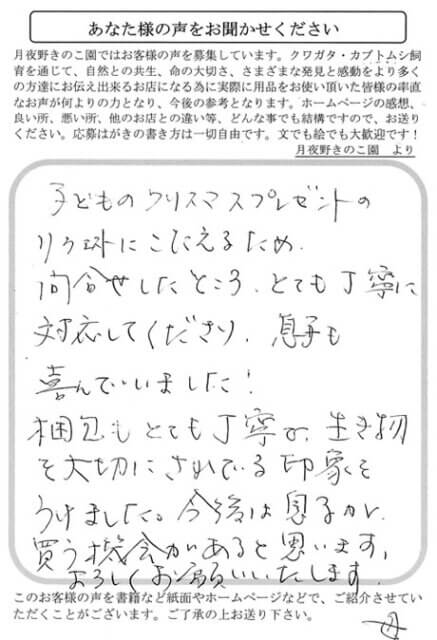 あなた様の声をお聞かせください
月夜野きのこ園ではお客様の声を募集しています。クワガタ・カブトムシ飼
育を通じて、自然との共生、命の大切さ、さまざまな発見と感動をより多く
の方達にお伝え出来るお店になる為に実際に用品をお使い頂いた皆様の率直
なお声が何よりの力となり、今後の参考となります。ホームページの感想、
良い所、悪い所、他のお店との違い等、どんな事でも結構ですので、お送り
ください。応募はがきの書き方は一切自由です。文でも絵でも大歓迎です！
月夜野きのこ園　より
子どものクリスマスプレゼントの
リクエストにこたえるため、
問合せしたところ、とても丁寧に
対応してくださり、息子も
喜んでいました！
梱包もとても丁寧で、生き物
を大切にされている印象を
うけました。今後は息子が、
買う機会があると思います、
よろしくお願いいたします。
母
このお客様の声を書籍など紙面やホームページなどで、ご紹介させてい
ただくことがございます。ご了承の上お送り下さい。